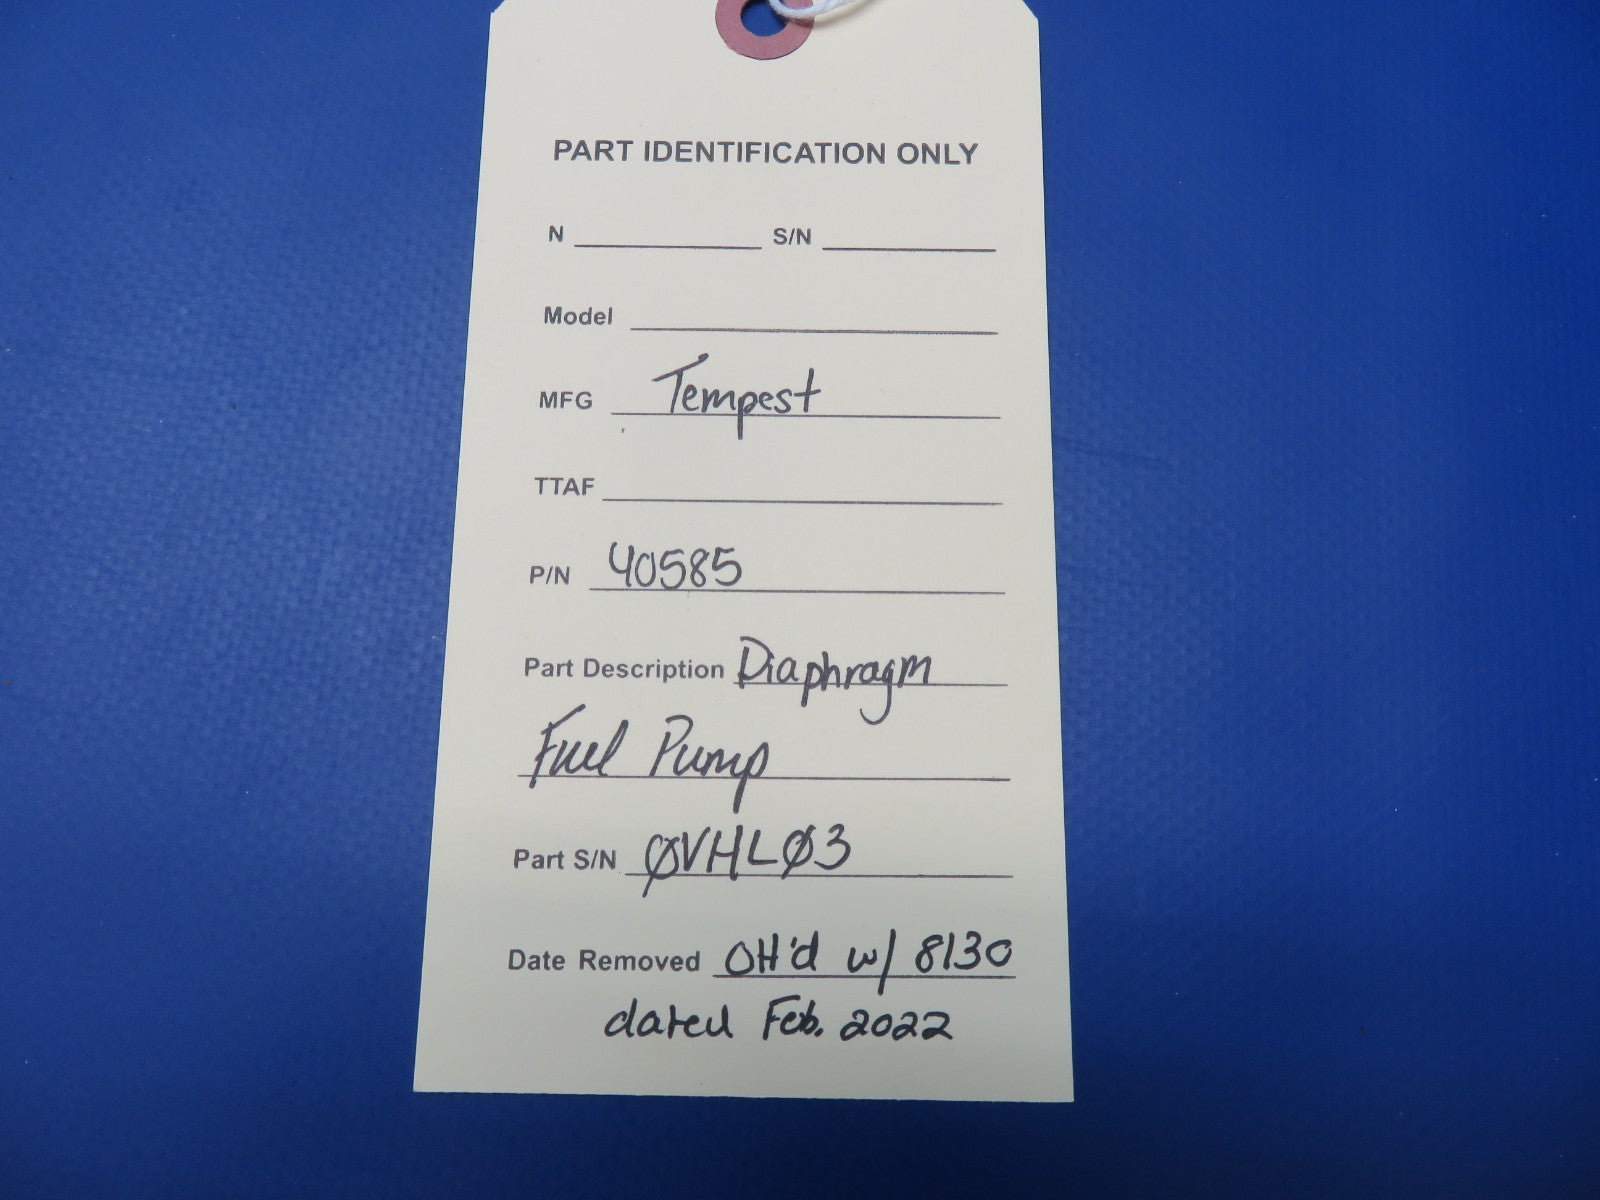 PART IDENTIFICATION ONLY
N S/N
Model
MFG Tempest
TTAF
P/N 40585
Part Description Diaphragm
Fuel Pump
Part S/N ØVHLØ3
Date Removed OH'd w/ 8130
dated Feb. 2022